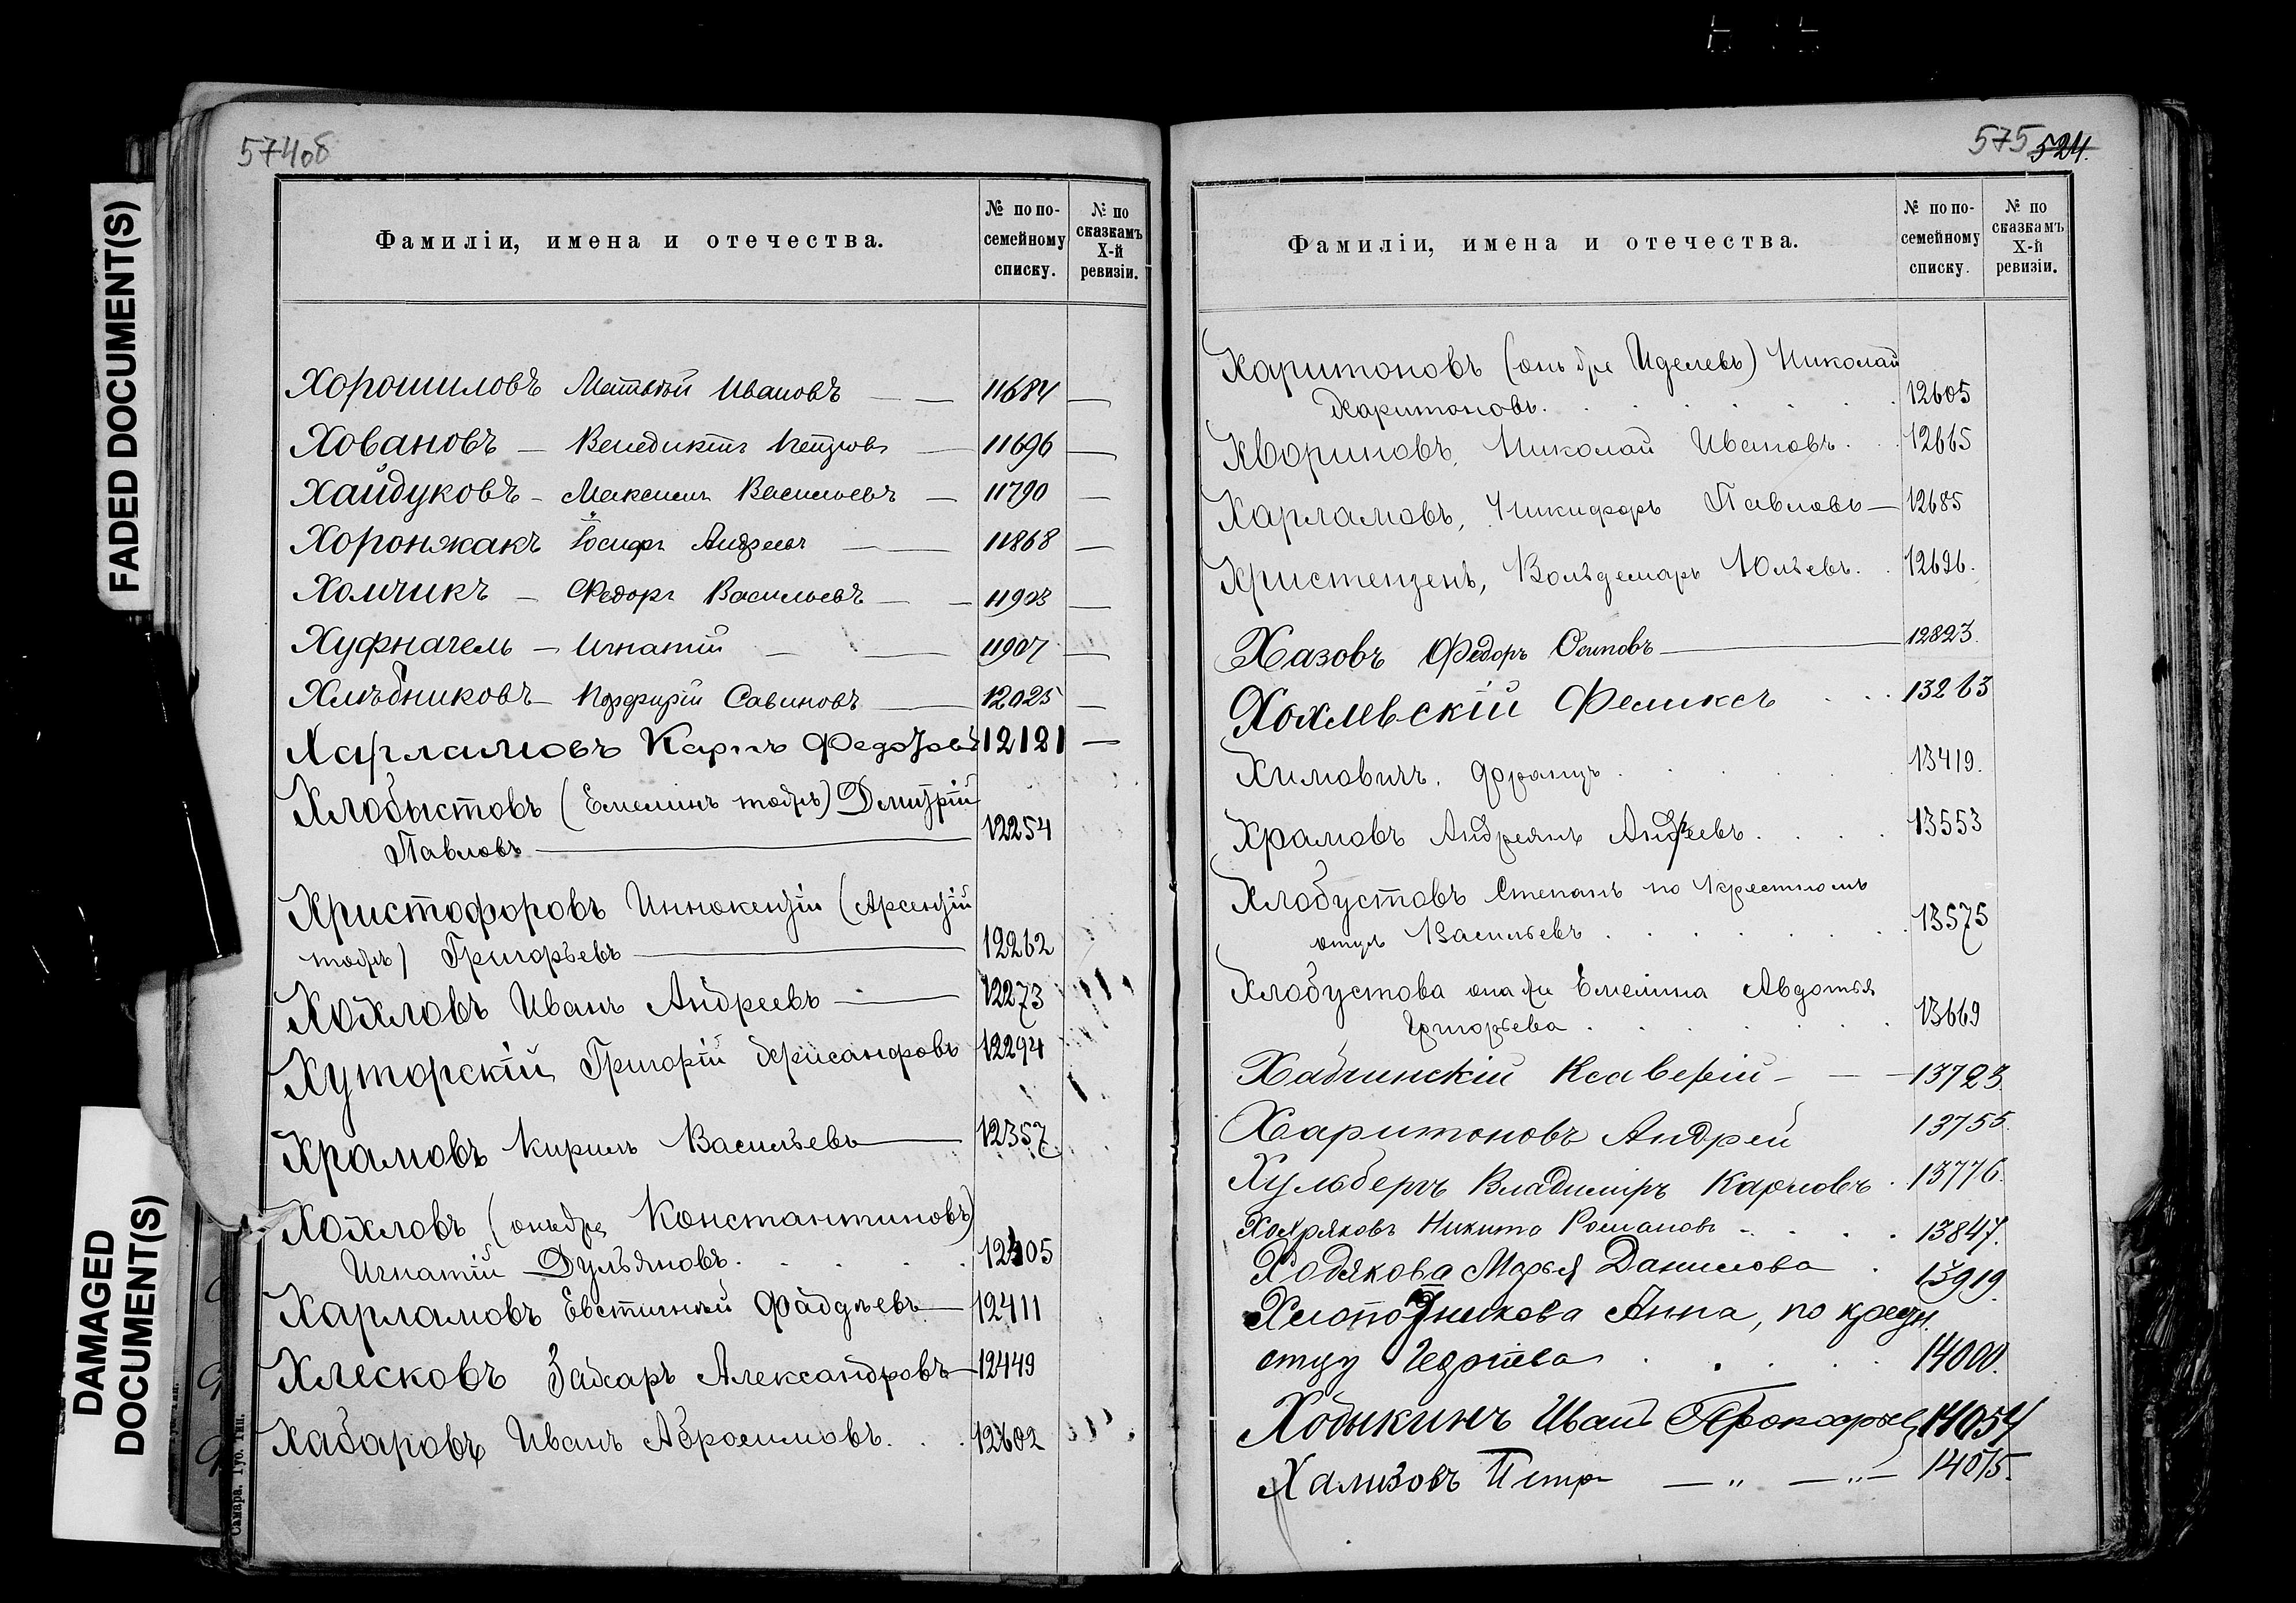 574об
Фамиліи, имена и отечества.
№ по по-семейному списку.
№ по сказкамъ X-й ревизіи.
Хорошиловъ Матвѣй Ивановъ — — 11684 —
Ховановъ — Венедиктъ Петровъ — 11696 —
Хайдуковъ — Максимъ Васильевъ — 11790 —
Хоронжакъ Іосифъ Андреевъ — 11868 —
Хомчикъ — Федоръ Васильевъ — — 11903 —
Хуфнагель — Игнатій — — 11907 —
Хлѣбниковъ — Порфирій Савиновъ — 12025 —
Харламовъ Карпъ Федоровъ 12121 —
Хлобыстовъ (Емелинъ тожъ) Дмитрій
Павловъ — 12254
Христофоровъ Иннокентій (Арсентій
тожъ) Григорьевъ — 12262
Хохловъ Иванъ Андреевъ — 12273
Хуторскій Григорій Хрисанфовъ 12294
Храмовъ Кирилъ Васильевъ — 12357
Хохловъ (онъ же Константиновъ)
Игнатій Дульяновъ. 12405
Харламовъ Евстигней Фаддѣевъ — 12411
Хлесковъ Захаръ Александровъ — 12449
Хабаровъ Иванъ Абросимовъ. 12602
Самара. Губ. Тип.
575 524.
Фамиліи, имена и отечества.
№ по по-семейному списку.
№ по сказкамъ X-й ревизіи.
Харитоновъ (онъ же Иделевъ) Николай
Харитоновъ. 12605
Хвориновъ, Николай Ивановъ. 12665
Харламовъ, Никифоръ Павловъ — 12685
Христензенъ, Вольдемаръ Юльевъ. 12696.
Хазовъ Федоръ Осиповъ — 12823.
Хохлевскій Феликсъ 13263
Химовичъ. Францъ 13419.
Храмовъ Андреянъ Андреевъ. 13553
Хлобустовъ Степанъ по крестному
отцу Васильевъ 13575
Хлобустова она же Емелина Авдотья
Григорьева 13669
Хабчинскій Ксаверій — — 13723
Харитоновъ Андрей 13755.
Хульбергъ Владиміръ Карловъ. 13776.
Хохряковъ Никита Романовъ — 13847.
Ходякова Марья Данилова 13919.
Хлопотникова Анна, по крест.
отцу Георгіева 14000.
Ходыкинъ Иванъ Прокофьевъ 14054
Хализовъ Петръ — " — " — 14075.
FADED DOCUMENT(S)
DAMAGED
DOCUMENT(S)